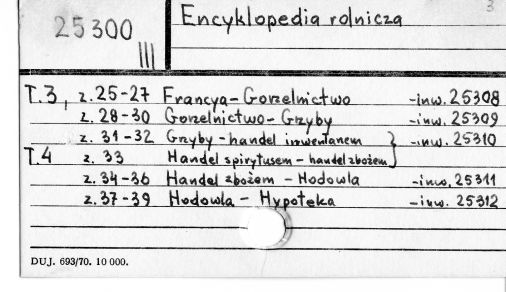 3
25300 Encyklopedia rolnicza
III
T.3, z. 25-27 Francya - Gorzelnictwo -inw. 25308
z. 28-30 Gorzelnictwo - Grzyby -inw. 25309
z. 31-32 Grzyby - handel inwentarzem } -inw. 25310
T.4 z. 33 Handel spirytusem - handel zbożem
z. 34-36 Handel zbożem - Hodowla -inw. 25311
z. 37-39 Hodowla - Hypoteka -inw. 25312
DUJ. 693/70. 10 000.